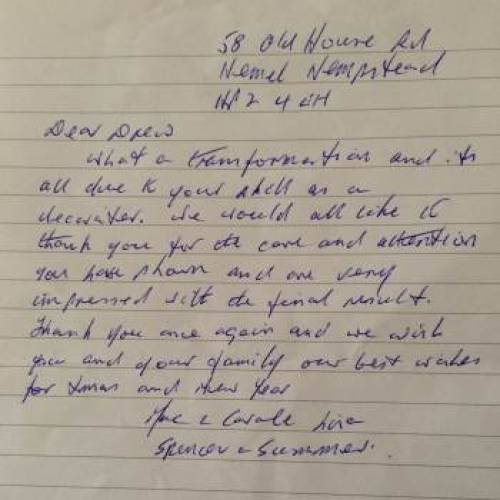 58 Old House Rd
Hemel Hempstead
HP2 4
Dear Drew
What a transformation and its
all due to your skill as a
decorater. We would all like to
thank you for the care and attention
you have shown and are very
impressed with the final result.
Thank you once again and we wish
you and your family our best wishes
for Xmas and New Year
& Carole
Spencer & Summer.